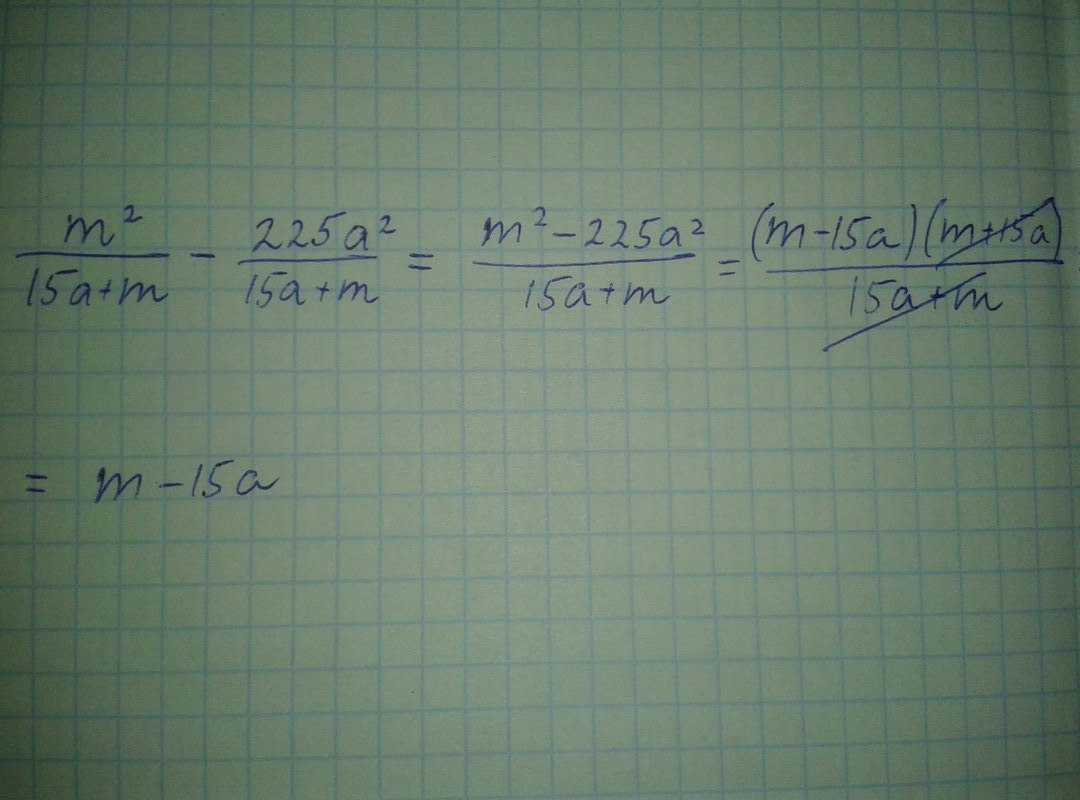 m²/(15a+m) - 225a²/(15a+m) = (m²-225a²)/(15a+m) = (m-15a)(m+15a)/(15a+m)
= m-15a